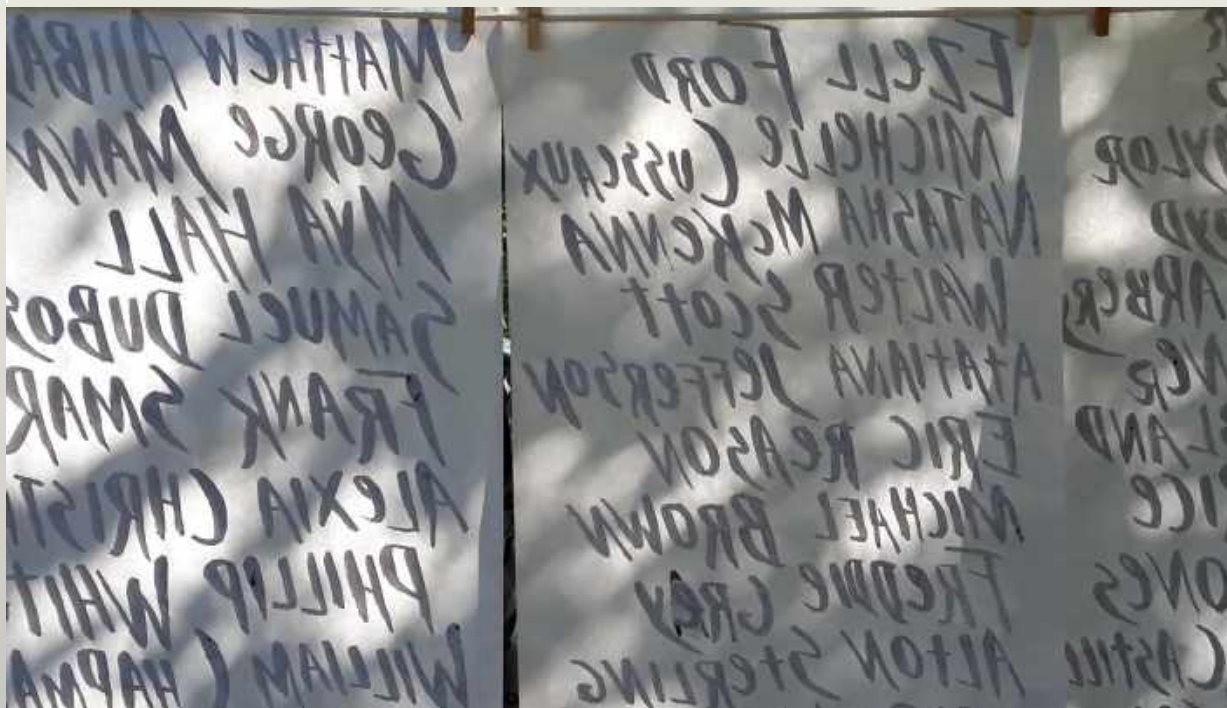 MATTHEW AJIBA
GEORGE MANN
MYA HALL
SAMUEL DUBOS
FRANK SMAR
ALEXIA CHRISTI
PHILLIP WHIT
WILLIAM CHAPMA
EZELL FORD
MICHELLE CUSSEAUX
NATASHA McKENNA
WALTER SCOTT
ATATIANA JEFFERSON
ERIC REASON
MICHAEL BROWN
FREDDIE GREY
ALTON STERLING
YLOR
YD
ARBERS
NER
LAND
ICE
ONES
CASTILL